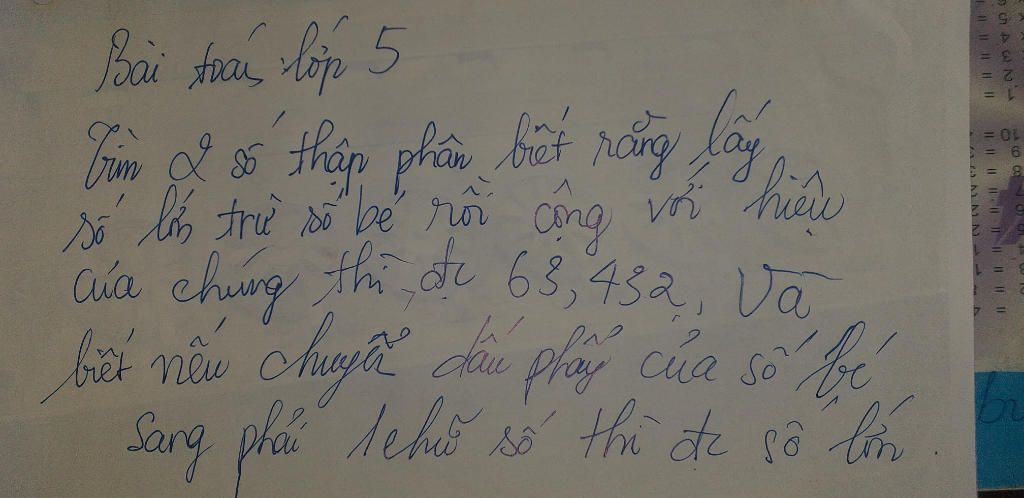 Bài toán lớp 5
Tìm 2 số thập phân biết rằng lấy
số lớn trừ số bé rồi cộng với hiệu
của chúng thì đc 63,432. Và
biết nếu chuyển dấu phẩy của số bé
sang phải 1 chữ số thì đc số lớn.